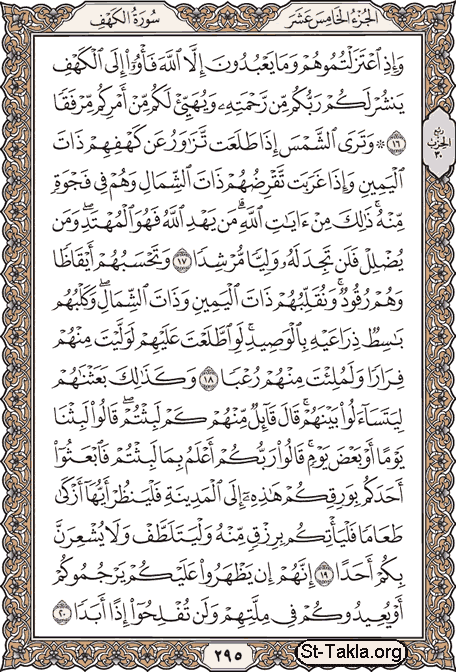 الجزء الخامس عشر
سورة الكهف
وَإِذِ ٱعْتَزَلْتُمُوهُمْ وَمَا يَعْبُدُونَ إِلَّا ٱللَّهَ فَأْوُۥٓا۟ إِلَى ٱلْكَهْفِ
يَنشُرْ لَكُمْ رَبُّكُم مِّن رَّحْمَتِهِۦ وَيُهَيِّئْ لَكُم مِّنْ أَمْرِكُم مِّرْفَقًا
١٦ ۞ وَتَرَى ٱلشَّمْسَ إِذَا طَلَعَت تَّزَٰوَرُ عَن كَهْفِهِمْ ذَاتَ
ربع
الحزب
٣٠
ٱلْيَمِينِ وَإِذَا غَرَبَت تَّقْرِضُهُمْ ذَاتَ ٱلشِّمَالِ وَهُمْ فِى فَجْوَةٍ
مِّنْهُ ۚ ذَٰلِكَ مِنْ ءَايَٰتِ ٱللَّهِ ۗ مَن يَهْدِ ٱللَّهُ فَهُوَ ٱلْمُهْتَدِ ۖ وَمَن
يُضْلِلْ فَلَن تَجِدَ لَهُۥ وَلِيًّا مُّرْشِدًا ١٧ وَتَحْسَبُهُمْ أَيْقَاظًا
وَهُمْ رُقُودٌ ۚ وَنُقَلِّبُهُمْ ذَاتَ ٱلْيَمِينِ وَذَاتَ ٱلشِّمَالِ ۖ وَكَلْبُهُم
بَٰسِطٌ ذِرَاعَيْهِ بِٱلْوَصِيدِ ۚ لَوِ ٱطَّلَعْتَ عَلَيْهِمْ لَوَلَّيْتَ مِنْهُمْ
فِرَارًا وَلَمُلِئْتَ مِنْهُمْ رُعْبًا ١٨ وَكَذَٰلِكَ بَعَثْنَٰهُمْ
لِيَتَسَآءَلُوا۟ بَيْنَهُمْ ۚ قَالَ قَآئِلٌ مِّنْهُمْ كَمْ لَبِثْتُمْ ۖ قَالُوا۟ لَبِثْنَا
يَوْمًا أَوْ بَعْضَ يَوْمٍ ۚ قَالُوا۟ رَبُّكُمْ أَعْلَمُ بِمَا لَبِثْتُمْ فَٱبْعَثُوٓا۟
أَحَدَكُم بِوَرِقِكُمْ هَٰذِهِۦٓ إِلَى ٱلْمَدِينَةِ فَلْيَنظُرْ أَيُّهَآ أَزْكَىٰ
طَعَامًا فَلْيَأْتِكُم بِرِزْقٍ مِّنْهُ وَلْيَتَلَطَّفْ وَلَا يُشْعِرَنَّ
بِكُمْ أَحَدًا ١٩ إِنَّهُمْ إِن يَظْهَرُوا۟ عَلَيْكُمْ يَرْجُمُوكُمْ
أَوْ يُعِيدُوكُمْ فِى مِلَّتِهِمْ وَلَن تُفْلِحُوٓا۟ إِذًا أَبَدًا ٢٠
٢٩٥
St-Takla.org